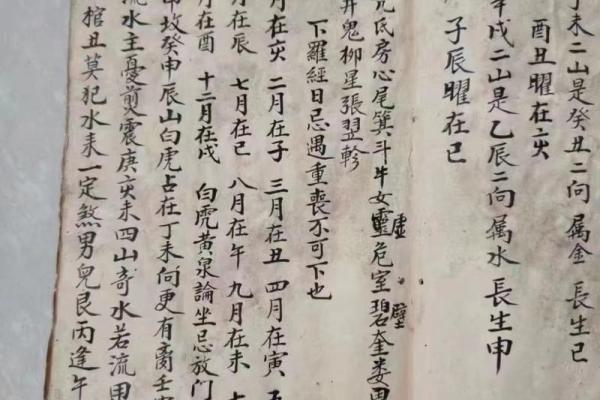 未二山是癸丑二向 属金 長生巳
酉丑曜在亥
戌二山是乙辰二向 属水 長生申
子辰曜在巳
亢氐房心尾箕斗牛女靈危室碧奎娄
虚 壁
井鬼柳星張翌軫
下羅經日忌遇重喪不可下也
月在亥 二月在子 三月在丑 四月在寅 五
月在辰 七月在巳 八月在午 九月在未
月在酉 十二月在戌 白虎黄泉論坐忌放門
坟癸申辰山白虎占在丁未向更有商壬
流水主憂煎震庚亥未四山奇水若流
棺丑莫犯水来一定煞男兒艮丙逢午